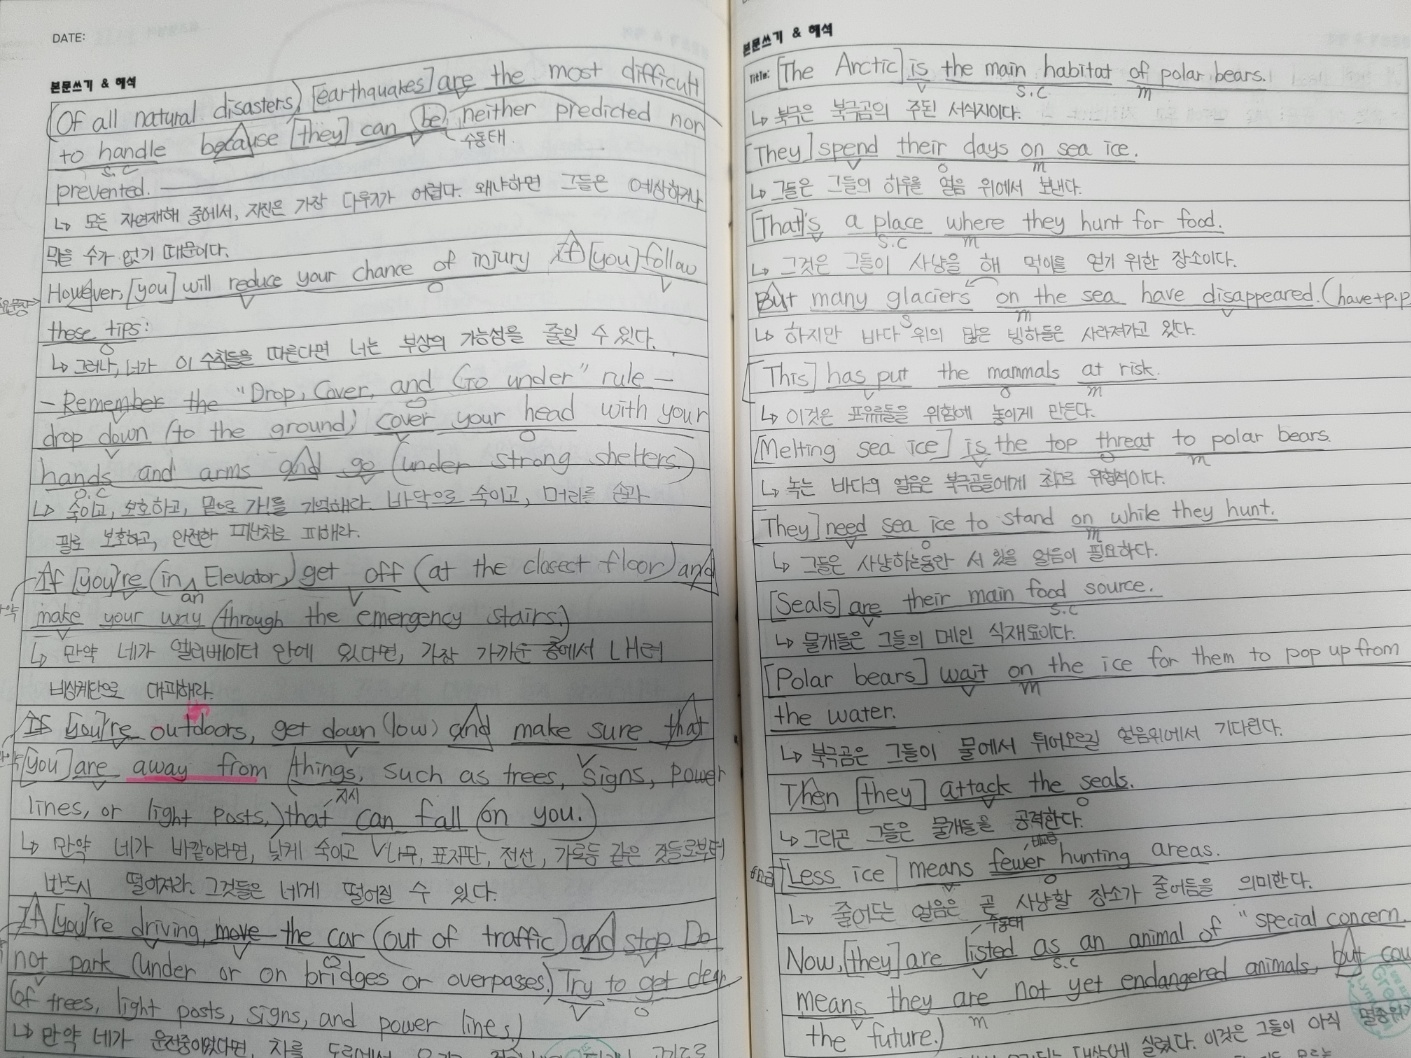 DATE:
본문쓰기 & 해석
(Of all natural disasters,) [earthquakes] are the most difficult
to handle because [they] can be neither predicted nor
s.c
수동태.
prevented.
↳ 모든 자연재해 중에서, 지진은 가장 다루기가 어렵다. 왜냐하면 그들은 예상하거나
막을 수가 없기 때문이다.
However, [you] will reduce your chance of injury If [you] follow
these tips:
↳ 그러나, 너가 이 수칙들을 따른다면 너는 부상의 가능성을 줄일 수 있다.
- Remember the "Drop, Cover, and Go under" rule -
drop down (to the ground) cover your head with your
hands and arms and go (under strong shelters)
o.c
↳ 숙이고, 보호하고, 밑으로 가!를 기억해라. 바닥으로 숙이고, 머리를 손과
팔로 보호하고, 안전한 피난처로 피해라.
If [you]'re (in Elevator) get off (at the closest floor) and
an
make your way (through the emergency stairs.)
↳ 만약 네가 엘리베이터 안에 있다면, 가장 가까운 층에서 내려
비상계단으로 대피해라.
If [you]'re outdoors, get down (low) and make sure that
[you] are away from (things, such as trees, signs, power
지시
lines, or light posts,) that can fall (on you.)
↳ 만약 네가 바깥이라면, 낮게 숙이고 나무, 표지판, 전선, 가로등 같은 것들로부터
반드시 떨어져라. 그것들은 네게 떨어질 수 있다.
If [you]'re driving, move the car (out of traffic) and stop Do
not park (under or on bridges or overpases.) Try to get clear
(of trees, light posts, signs, and power lines.)
↳ 만약 네가 운전중이었다면, 차를
본문쓰기 & 해석
Title: [The Arctic] is the main habitat of polar bears.
s.c m
↳ 북극은 북극곰의 주된 서식지이다.
[They] spend their days on sea ice.
o m
↳ 그들은 그들의 하루를 얼음 위에서 보낸다.
[That]'s a place where they hunt for food.
s.c m
↳ 그것은 그들이 사냥을 해 먹이를 얻기 위한 장소이다.
But many glaciers on the sea have disappeared. (have+p.p
s m
↳ 하지만 바다 위의 많은 빙하들은 사라져가고 있다.
[This] has put the mammals at risk.
o m
↳ 이것은 포유류들을 위험에 놓이게 만든다.
[Melting sea ice] is the top threat to polar bears.
m
↳ 녹는 바다의 얼음은 북극곰들에게 최고로 위협적이다.
They] need sea ice to stand on while they hunt.
o m
↳ 그들은 사냥하는동안 서 있을 얼음이 필요하다.
[Seals] are their main food source.
s.c
↳ 물개들은 그들의 메인 식재료이다.
[Polar bears] wait on the ice for them to pop up from
m
the water.
↳ 북극곰은 그들이 물에서 튀어오르길 얼음위에서 기다린다.
Then [they] attack the seals.
o
↳ 그리곤 그들은 물개들을 공격한다.
[Less ice] means fewer hunting areas.
o
↳ 줄어드는 얼음은 곧 사냥할 장소가 줄어듬을 의미한다.
수동태
Now, [they] are listed as an animal of "special concern.
s.c
means they are not yet endangered animals, but cou
m
the future.)